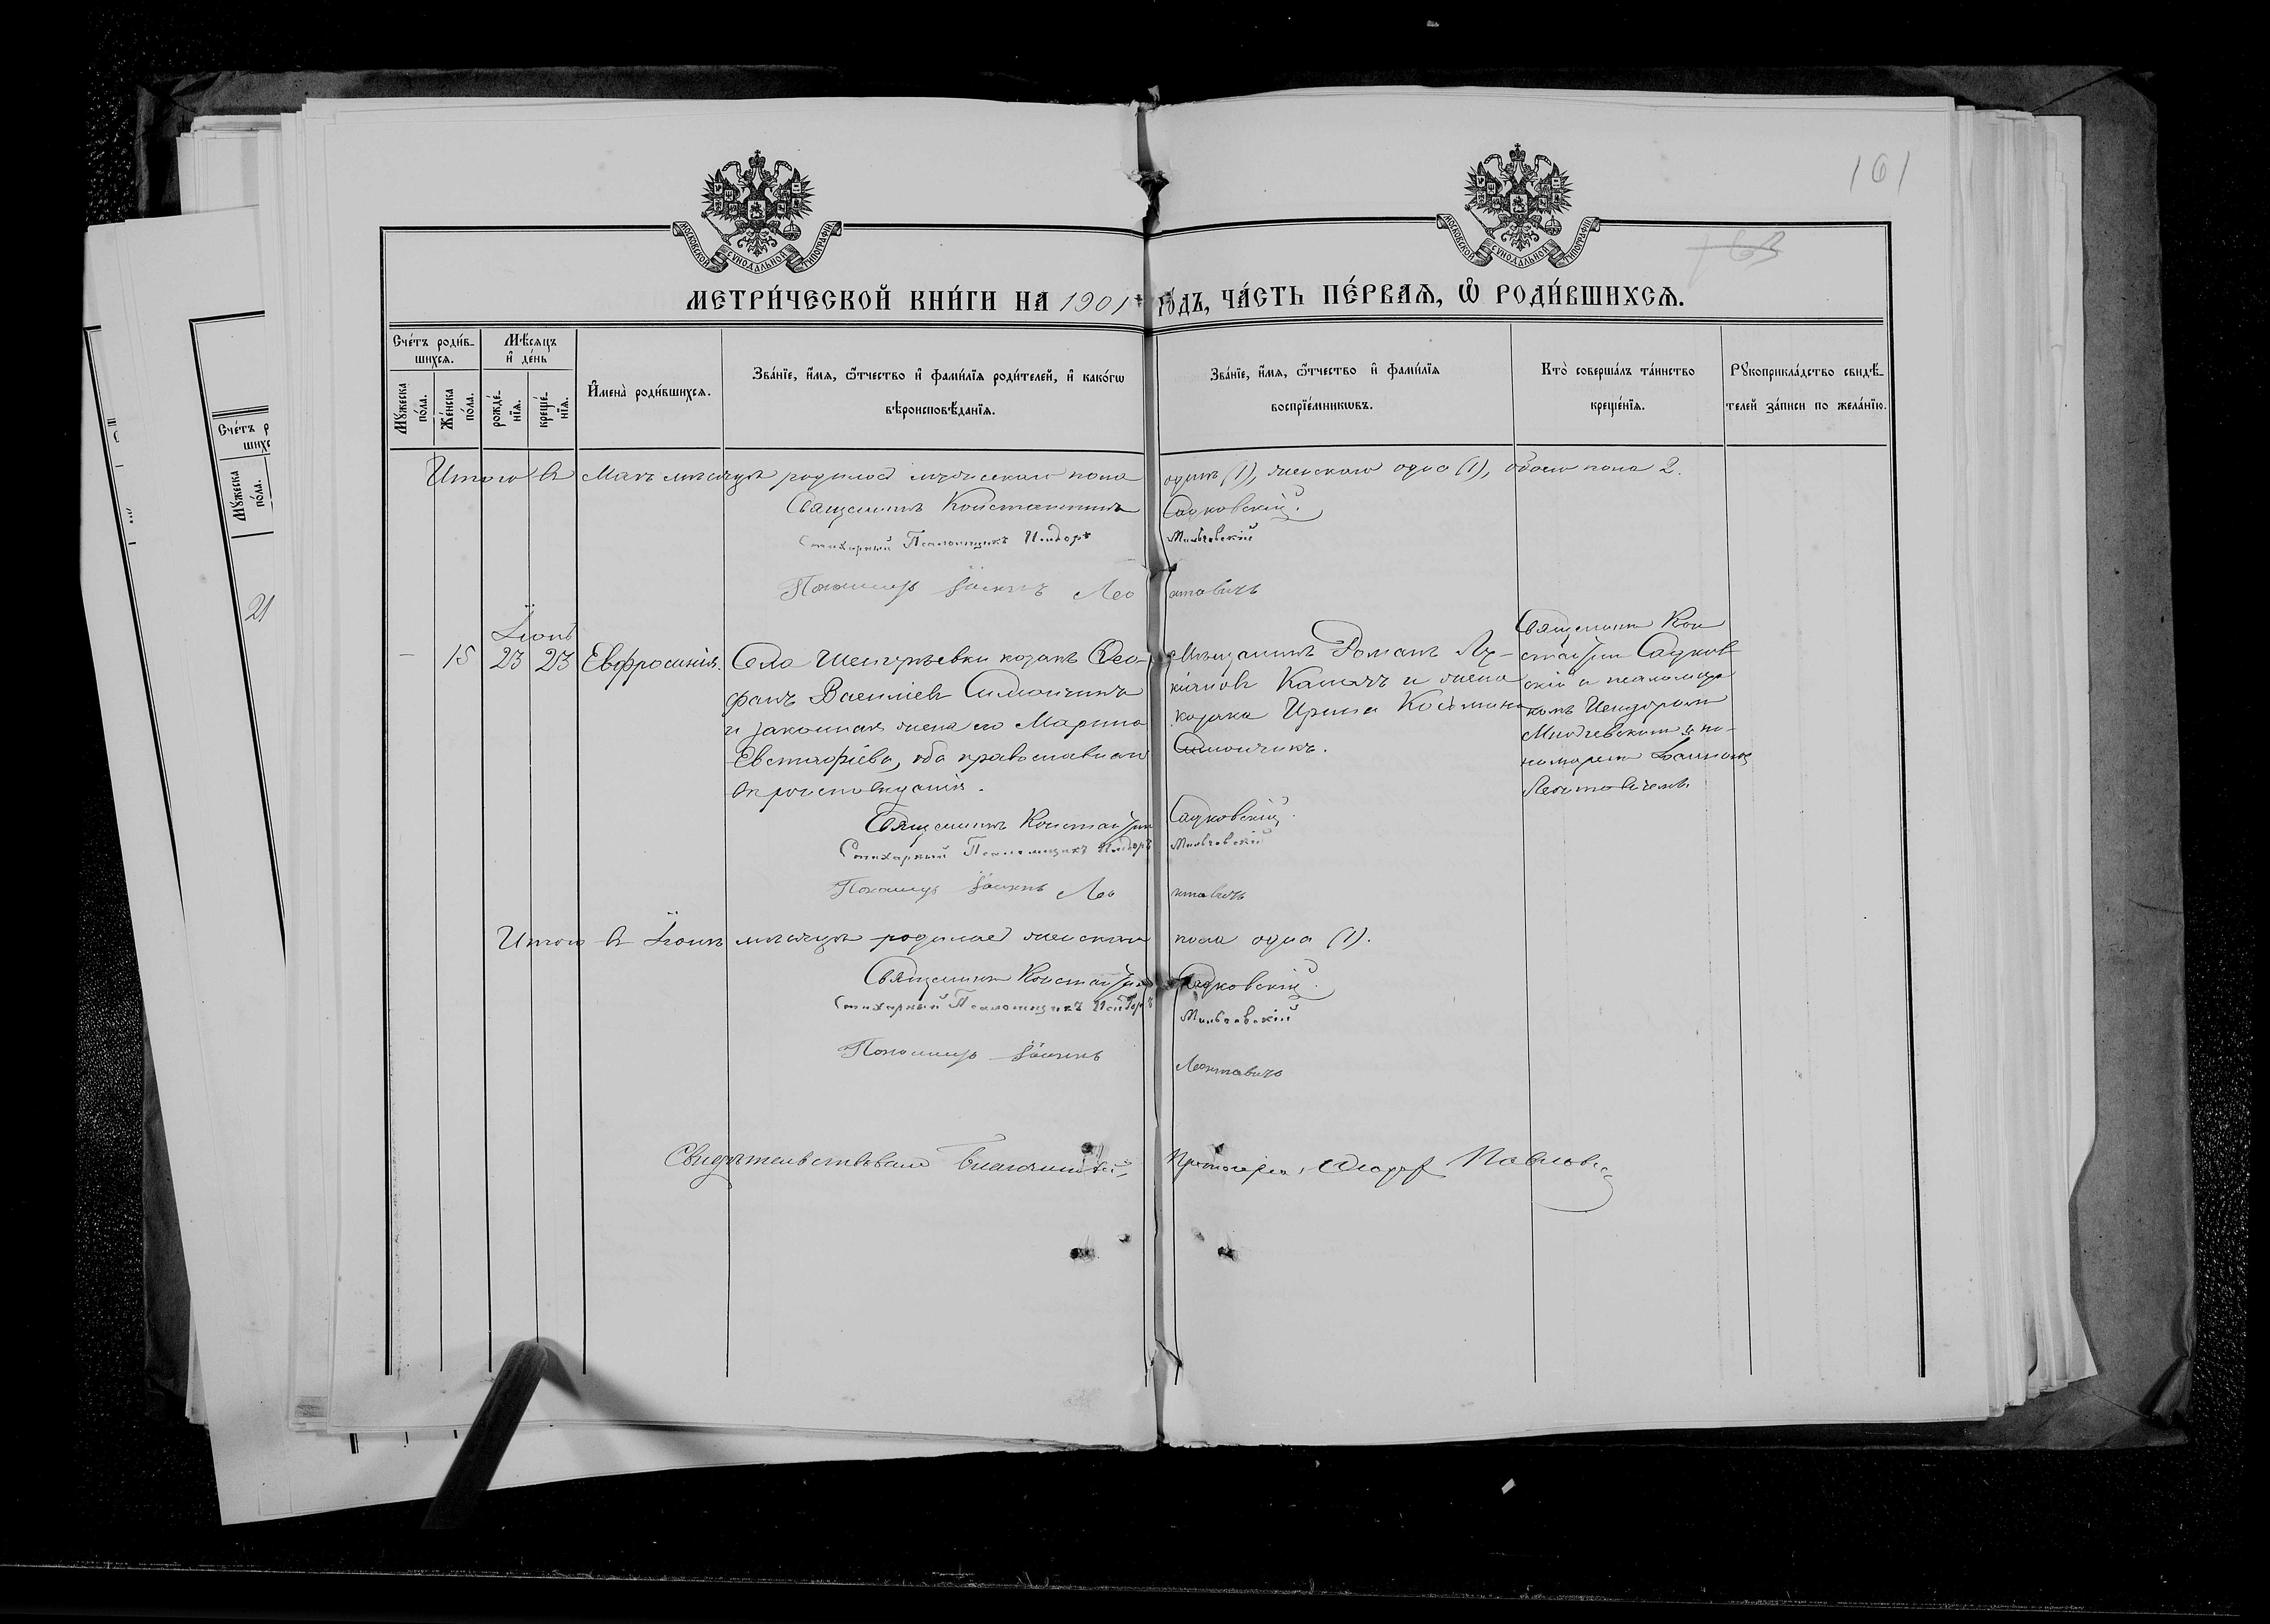 161
МОСКОВСКОЙ СѴНОДАЛЬНОЙ ТИПОГРАФІИ
МОСКОВСКОЙ СѴНОДАЛЬНОЙ ТИПОГРАФІИ
МЕТРИ́ЧЕСКОЙ КНИ́ГИ НА 1901 ГО́ДЪ, ЧА́СТЬ ПЕ́РВАѦ, Ѡ҆ РОДИ́ВШИХСѦ.
Сче́тъ роди́в-
шихсѧ.
Мꙋ́жеска по́ла.
Же́нска по́ла.
Мѣ́сѧцъ
и҆ де́нь
рожде́-
нїѧ.
креще́-
нїѧ.
И҆мена̀ роди́вшихсѧ.
Зва́нїе, и҆́мѧ, ѻ҆́тчество и҆ фами́лїѧ роди́телей, и҆ како́гѡ
вѣроисповѣ́данїѧ.
Зва́нїе, и҆́мѧ, ѻ҆́тчество и҆ фами́лїѧ
воспрїе́мникѡвъ.
Кто̀ соверша́лъ та́инство
креще́нїѧ.
Рꙋкоприкла́дство свидѣ́-
телей за́писи по жела́нїю.
Итого въ Маѣ мѣсяцѣ родилось мужескаго пола одинъ (1), женскаго одна (1), обоего пола 2.
Священникъ Константинъ Садковскій.
Стихарный Псаломщикъ Исидоръ Мильчевскій
Пономарь Іоаннъ Леонтовичъ
Іюнь
— 15 23 23 Евфросинія.
Села Шенгурѣевки козакъ Ѳео-
фанъ Васильевъ Симончикъ
и законная жена его Марина
Евстафіева, оба православнаго
вѣроисповѣданія.
Мѣщанинъ Романъ Лу-
кіановъ Качанъ и жена
козака Ирина Косьмина
Симончикъ.
Священникъ Кон
стантинъ Садков
скій и псаломщи
комъ Исидоромъ
Мильчевскимъ и по-
номаремъ Іоанномъ
Леонтовичемъ.
Священникъ Константинъ Садковскій.
Стихарный Псаломщикъ Исидоръ Мильчевскій
Пономарь Іоаннъ Леонтовичъ
Итого въ Іюнѣ мѣсяцѣ родилось женскаго пола одна (1).
Священникъ Константинъ Садковскій.
Стихарный Псаломщикъ Исидоръ Мильчевскій
Пономарь Іоаннъ Леонтовичъ
Свидѣтельствовалъ Благочинный Протоіерей Павловъ
Сче́тъ р
шихс
Мꙋ́жеска
по́ла.
21